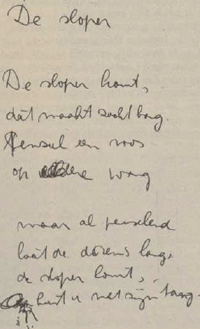 De sloper
De sloper komt,
dat maakt zacht bang.
Penseel een roos
op iedere wang
maar al penselend
laat de dorens lang,
de sloper komt,
hij kust u met zijn tang.